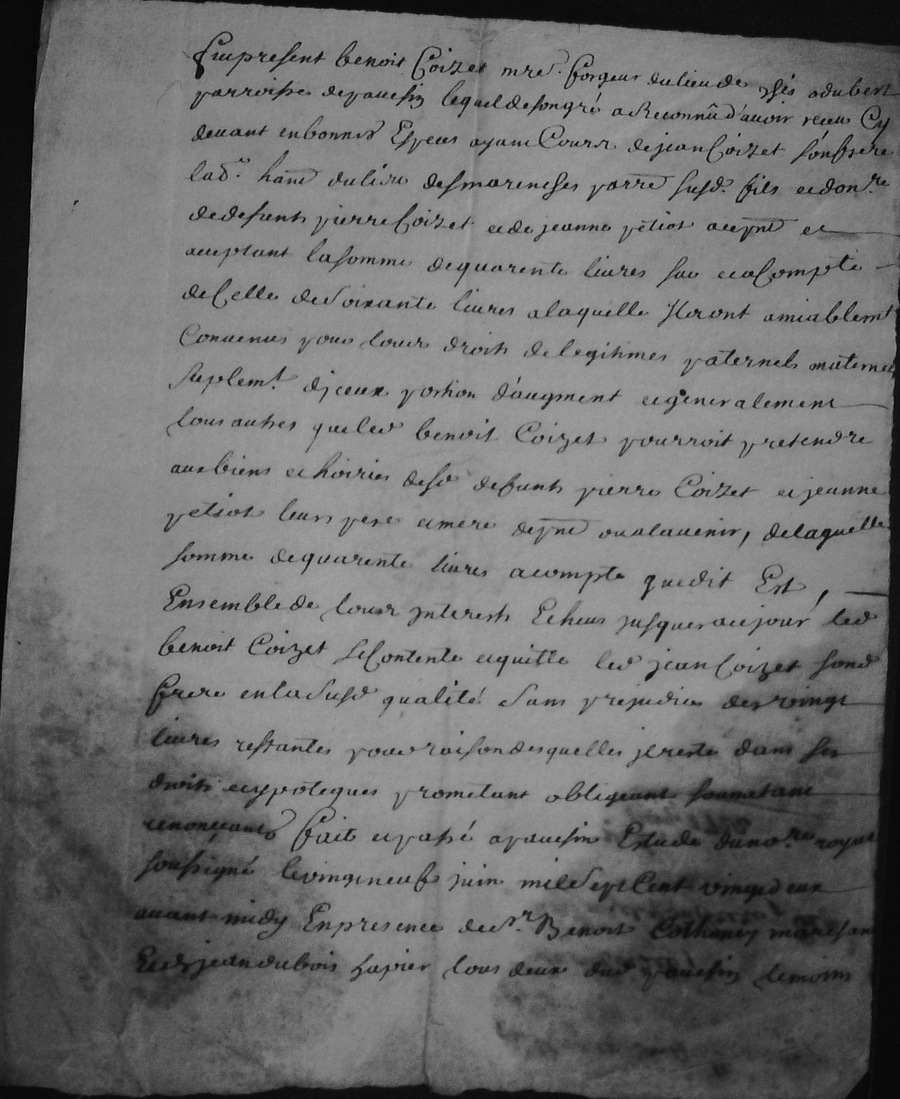 fut present benoit Coizet mre. forgeur du lieu de chés odubert
parroisse depauesin lequel de son gré a Reconnû d'avoir receu Cy
deuant en bonnes Especes ayant Cours de jean Coizet son frere
lad. hant du lieu des marenches parre susd. fils et donre
de defunts pierre Coizet et de jeanne petiot acept et
aceptant la somme de quarente liures sur et a Compte
de Celle de Soixante liures a laquelle jls ront amiablemt
Conuenus pour tous droits de legitimes paternels maternels
suplemt. djceux portion d'augment et generalement
tous autres que led benoit Coizet pourroit pretendre
aux biens et hoiries desd defunts pierre Coizet et jeanne
petiot leurs pere et mere de pnt ou a lauenir, de laquelle
somme de quarente liures a compte que dit Est,
Ensemble de tous jnterests Echeus jusques a ce jour led
benoit Coizet se Contente et quitte led jean Coizet sond
frere en la Susd qualité Sans prejudice des vingt
liures restantes pour raison desquelles il reste dans ses
droits et ypoteques prometant obligeant soumetant
renonçant fait et passé a pauesin Estude du nore royal
soussigné le vingt neuf juin mil Sept Cent vingt deux
auant midy En presence de sr. Benoit marchand
Et de jean dubois tous deux dud pauesin temoins